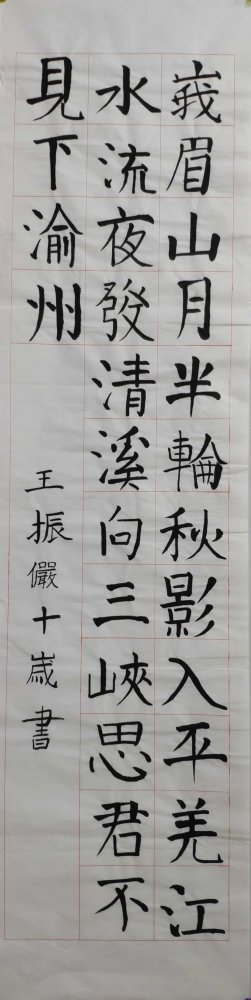 峩眉山月半輪秋影入平羌江
水流夜發清溪向三峽思君不
見下渝州
王振儼十歲書